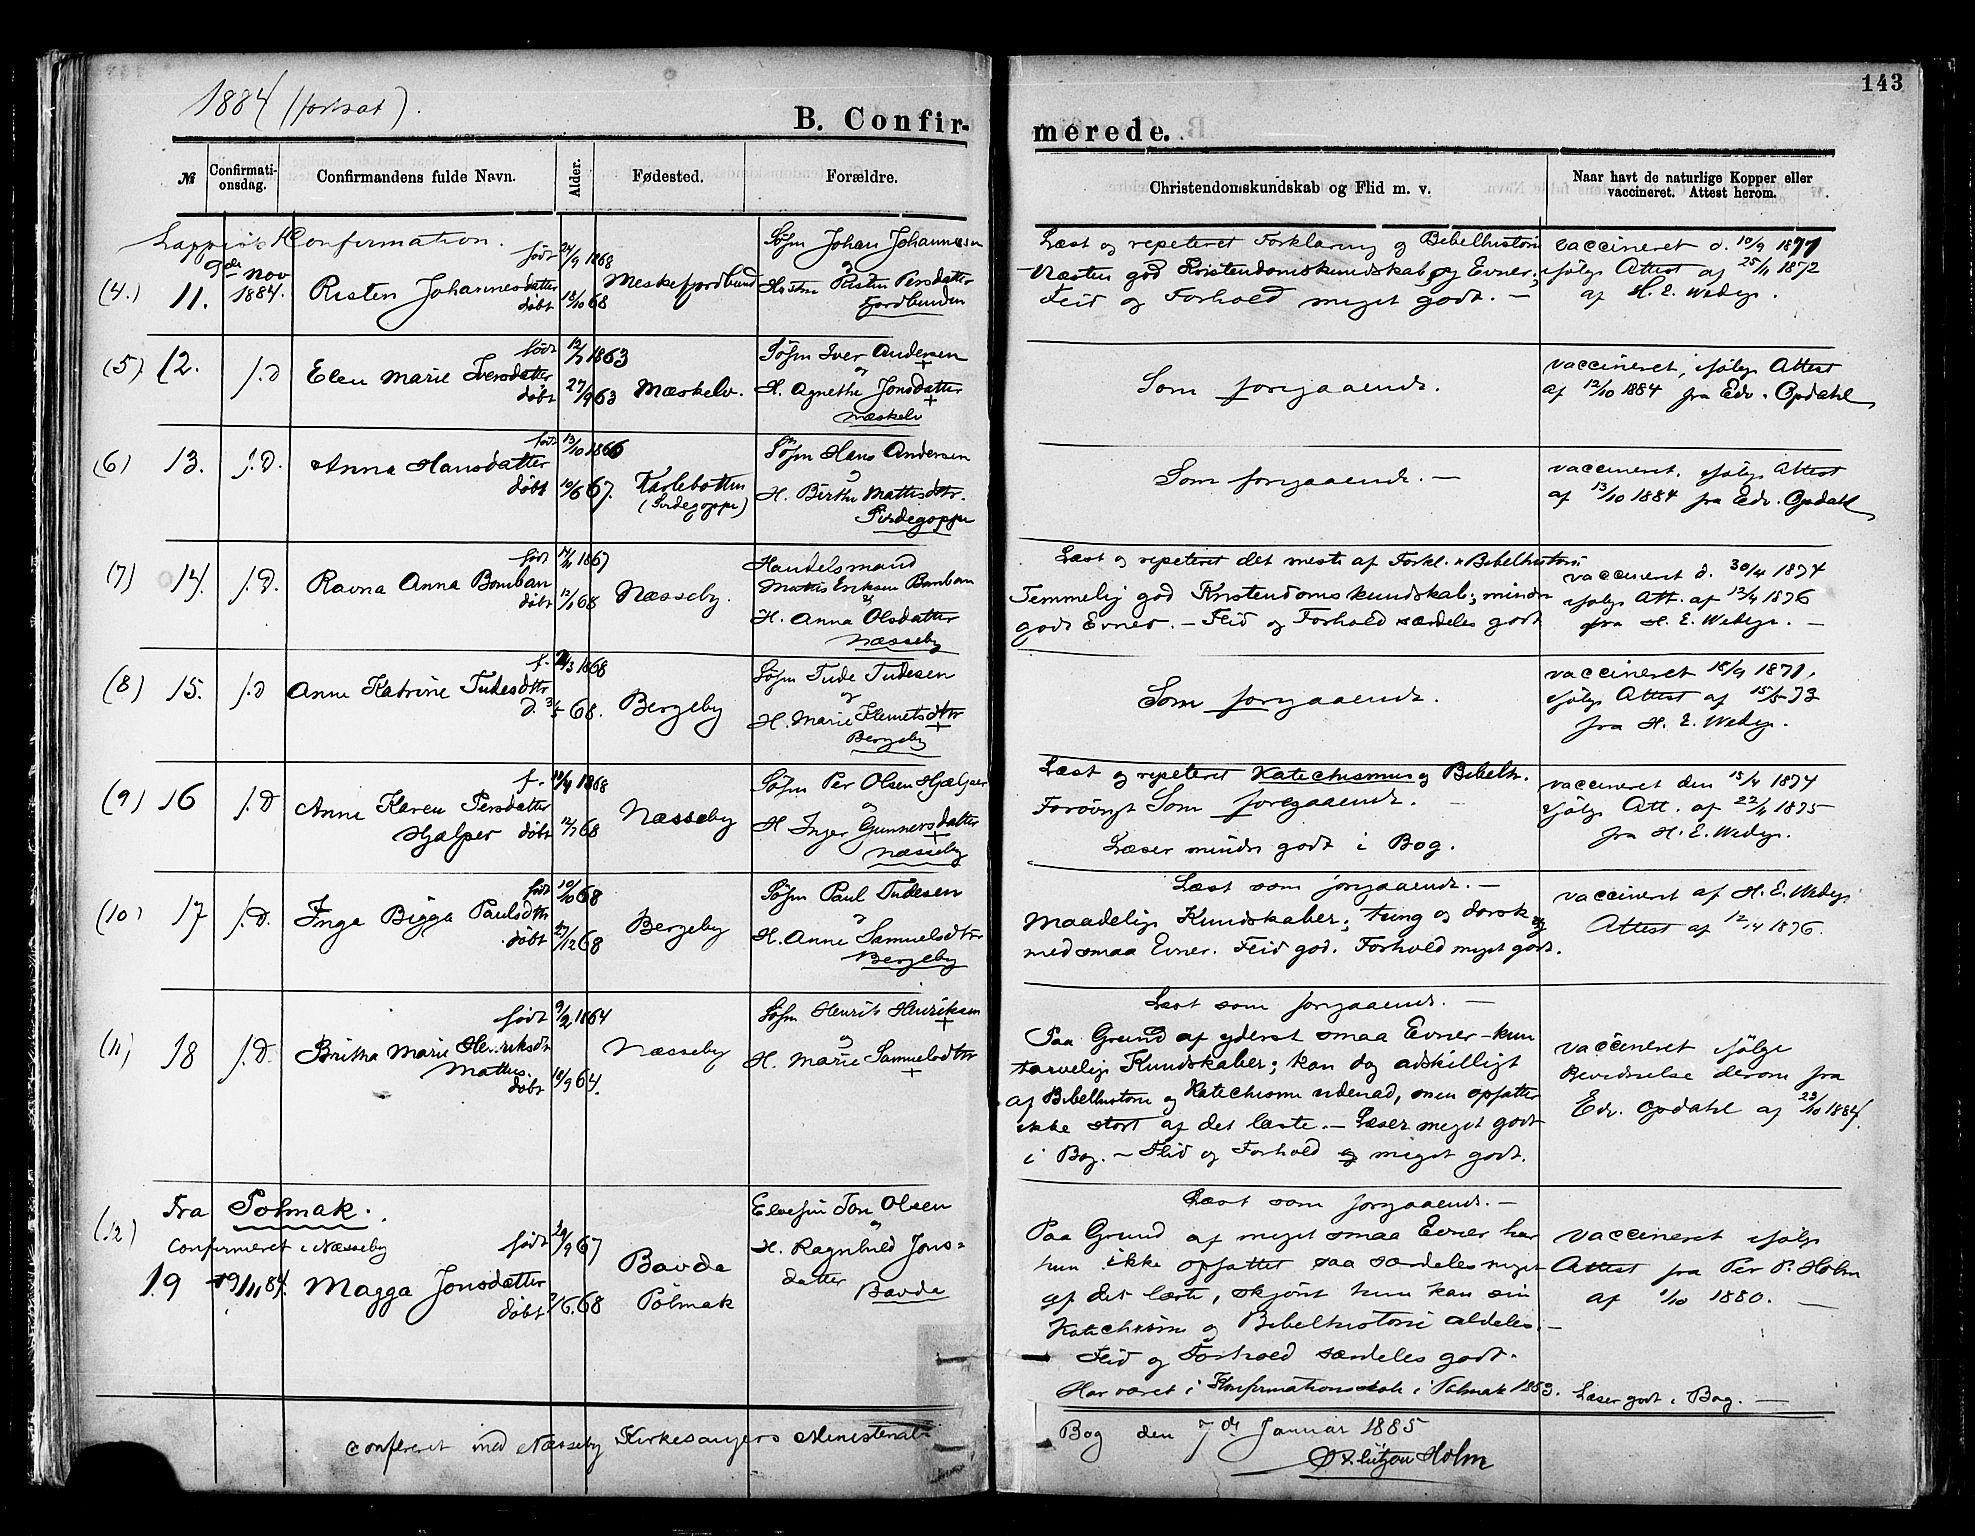 143
1884 (fortsat).
B. Confir-
merede.
№ Confirmati-onsdag. Confirmandens fulde Navn. Alder. Fødested. Forældre.
Christendomskundskab og Flid m. v. Naar havt de naturlige Kopper eller vaccineret. Attest herom.
Lappisk Konfirmation.
(4.) 11. 9de Nov 1884. Risten Johannesdatter født 24/9 1868 døbt 18/10 68 Meskefjordbund
Søfin Johan Johannesen
og
Hustru Risten Persdatter
Fjordbunden
Læst og repeteret Forklaring og Bibelhistorie
Næsten god Kristendomskundskab og Evner;
Flid og Forhold meget godt. —
vaccineret d. 10/9 1871
ifølge Attest af 25/11 1872
af H. E. Wedege.
(5) 12. f.D Elen Marie Iversdatter født 12/7 1863 døbt 27/9 63 Mæskelv.
Søfin Iver Andersen +
og
H. Agnethe Jonsdatter +
Mæskelv
Som foregaaende.
vaccineret, ifølge Attest
af 12/10 1884 fra Edv. Opdahl
(6) 13. f.D. Anna Hansdatter født 13/10 1866 døbt 10/6 67. Karlebotten
(Sirdegoppe)
Søfin Hans Andersen
og
H. Birthe Mattisdtr.
Sirdegoppe
Som foregaaende. —
vaccineret, ifølge Attest
af 13/10 1884 fra Edv. Opdahl
(7) 14. f.D. Ravna Anna Bomban født 1867 døbt 12/1 68 Næsseby.
Handelsmand
Mathis Eriksen Banban
&
H. Anna Olsdatter
Næsseby
Læst og repeteret det meste af Forkl. & Bibelhistorie
Temmelig god Kristendomskundskab; mindre
gode Evner. — Flid og Forhold særdeles godt
vaccineret d. 30/4 1874
ifølge Att. af 12/4 1876
fra H. E. Wedege. —
(8) 15. f.D Anne Katrine Tudesdtr f. 1868 d. 3/5 68. Bergeby
Søfin Tude Tudesen
og
H. Marie Klemetsdtr +
Bergeby
Som foregaaende.
vaccineret 18/9 1871,
ifølge Attest af 15/5 73
fra H. E. Wedege.
(9) 16 f.D Anne Karen Persdatter
Hjælper f. 1868 døbt 12/7 68 Næsseby
Søfin Per Olsen Hjælper
og
H Inger Gunnersdatter +
Næsseby
Læst og repeteret Katechismus og Bibelh.
Forøvrigt Som foregaaende. —
Læser mindre godt i Bog.
vaccineret den 15/4 1874
ifølge Att. af 22/4 1875
fra H. E. Wedege.
(10) 17 f.D. Inga Bigga Paulsdtr født 10/10 68 døbt 27/12 68 Bergeby
Søfin Paul Tudesen
og
H. Anne Samuelsdtr
Bergeby
Læst som foregaaende. —
Maadelige Kundskaber; tung og dorsk og
med smaa Evner. Flid god. Forhold meget godt.
vaccineret af H. E. Wedege
Attest af 12/4 1876.
(11) 18 f.D. Britha Marie Henriksdtr
Mathis. født 9/2 1864 døbt 18/9 64. Næsseby
Søfin Henrik Henriksen +
og
H. Marie Samuelsdtr +
Læst som foregaaende. —
Paa Grund af yderst smaa Evner kun
tarvelige Kundskaber; kan dog adskilligt
af Bibelhistorie og Katechisme udenad, men opfatter
ikke stort af det læste. — Læser meget godt
i Bog. — Flid og Forhold og meget godt.
vaccineret ifølge
Bevidnelse derom fra
Edv. Opdahl af 23/10 1884.
(12) Fra Polmak.
Confirmeret i Næsseby
19 9/11 84. Magga Jonsdatter født 67 døbt 2/6. 68 Bavda
Polmak
Elvefin Jon Olsen
og
H. Ragnhild Jons=
datter
Bavda
Læst som foregaaende. —
Paa Grund af meget smaa Evner har
hun ikke opfattet saa særdeles meget
af det læste, skjønt hun kan sin
Katechisme og Bibelhistorie aldeles. —
Flid og Forhold særdeles godt.
Har været i Konfirmationsskole i Polmak 1883. Læser godt i Bog. —
vaccineret ifølge
Attest fra Per P. Holm
af 1/10 1880. —
confereret med Næsseby Kirkesangers Ministerial-
Bog den 7de Januar 1885
Lützow Holm